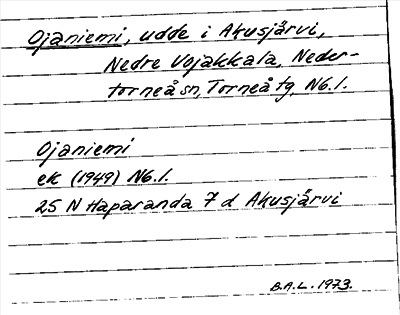 Ojaniemi, udde i Akusjärvi,
Nedre Vojakkala, Neder-
torneå sn, Torneå tg, N6.1.
Ojaniemi
ek (1949) N6.1.
25 N Haparanda 7 d Akusjärvi
B.A.L. 1973.